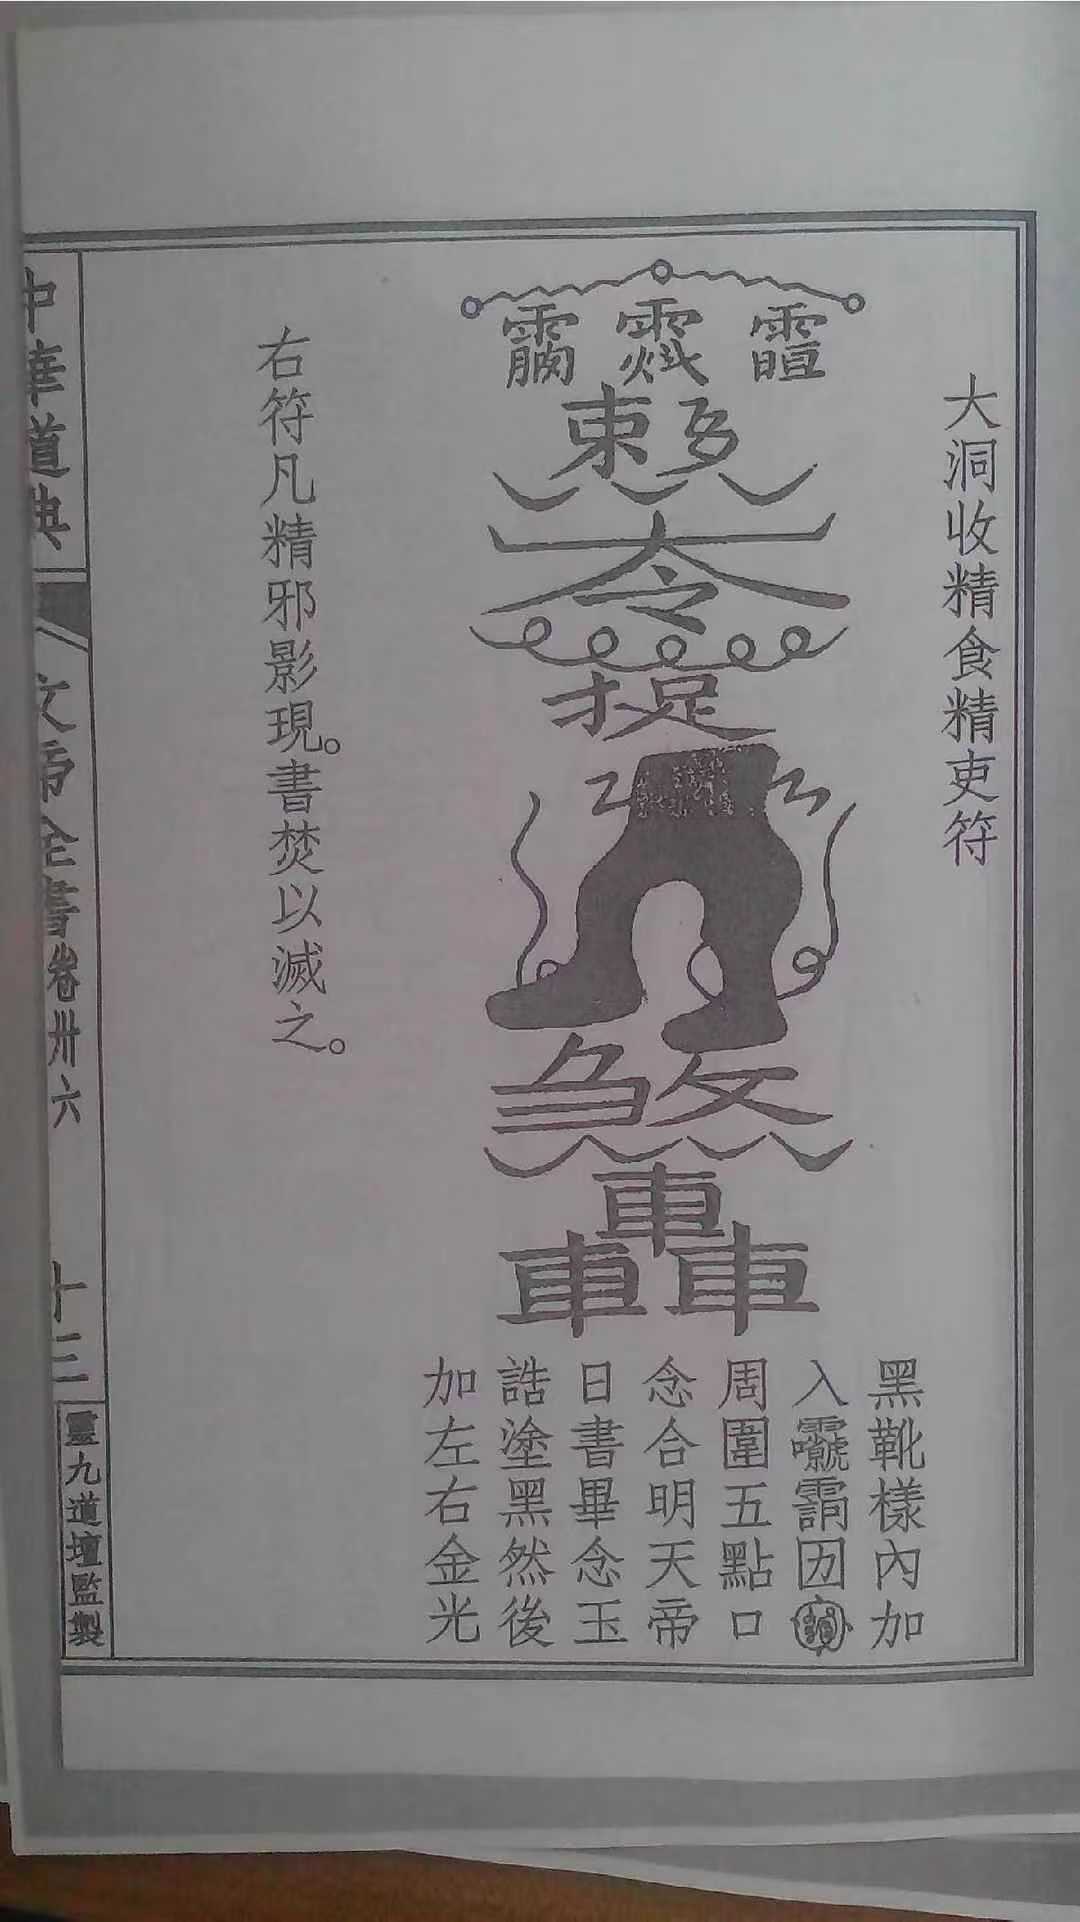 大洞收精食精吏符
敕
令
捉
煞
車
車車
黑靴樣內加
入囙
周圍五點口
念合明天帝
日書畢念玉
誥塗黑然後
加左右金光
右符凡精邪影現。書焚以滅之。
中華道典
文帝全書卷卅六
十三
靈九道壇監製